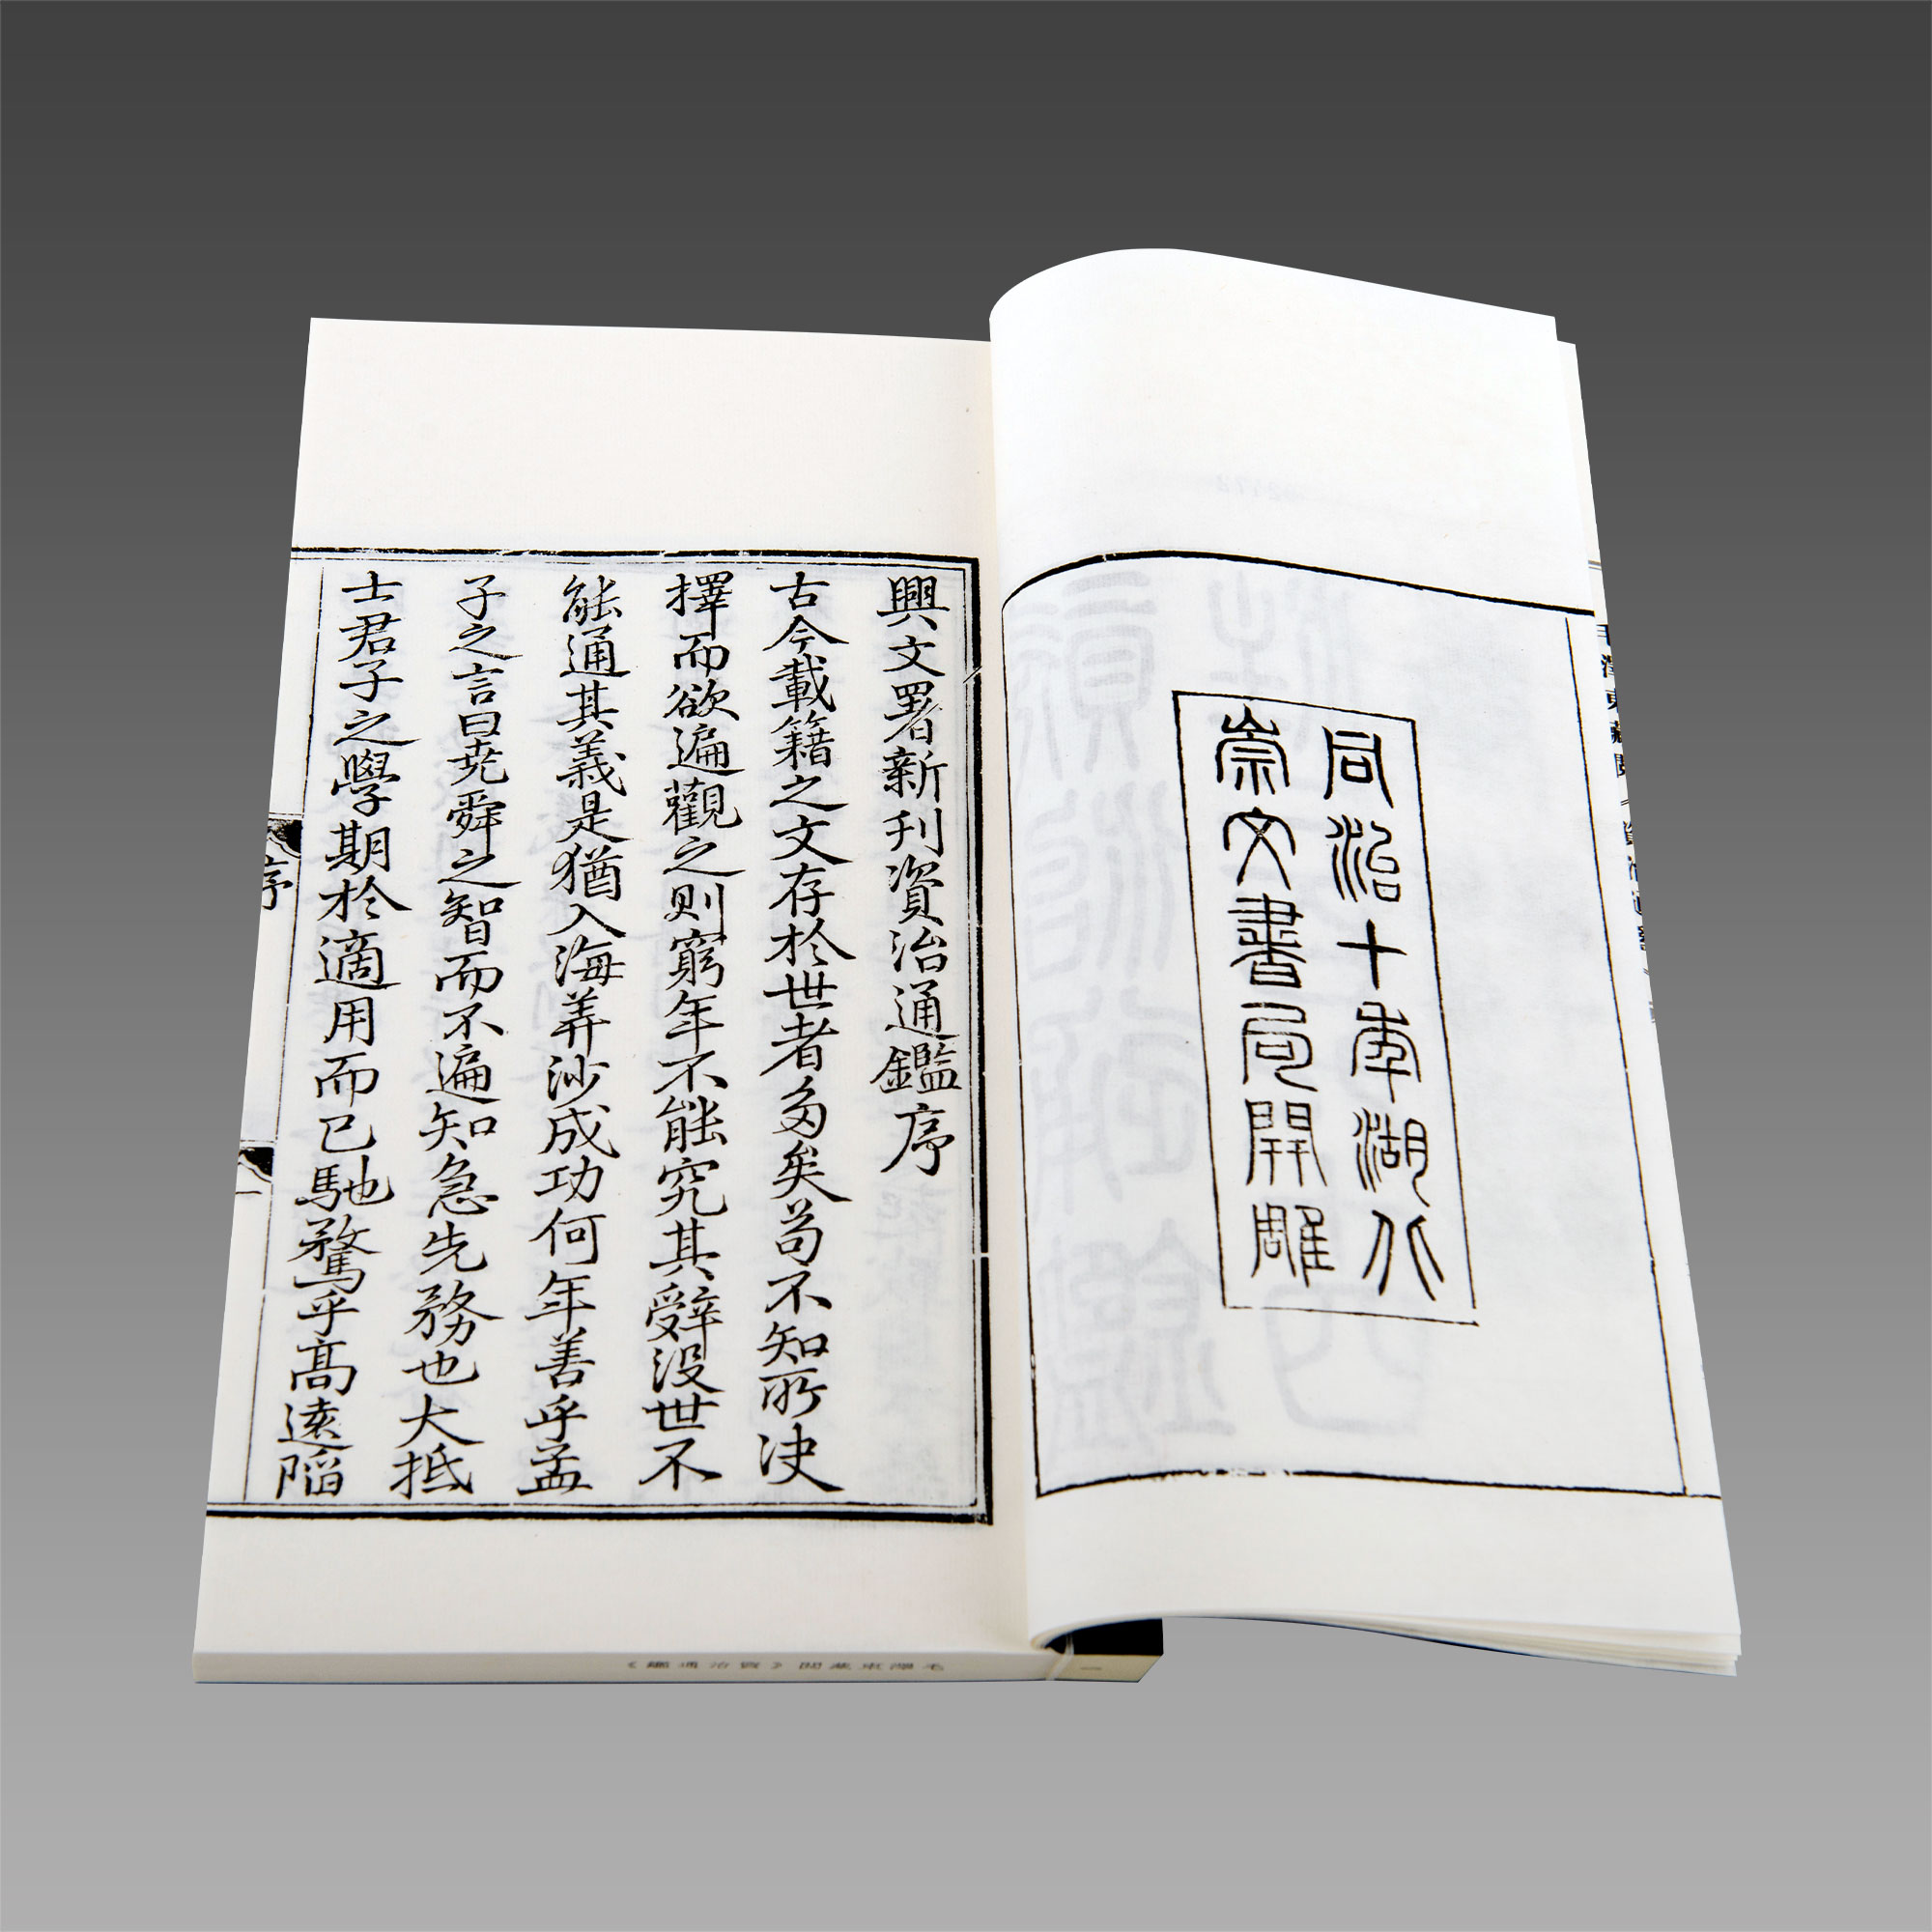 同治十年湖北
崇文書局開雕
興文署新刊資治通鑑序
古今載籍之文存於世者多矣苟不知所決
擇而欲遍觀之則窮年不能究其辭没世不
能通其義是猶入海筭沙成功何年善乎孟
子之言曰堯舜之智而不遍知急先務也大抵
士君子之學期於適用而已馳騖乎高遠陷
序
毛澤東藏閲《資治通鑑》
一